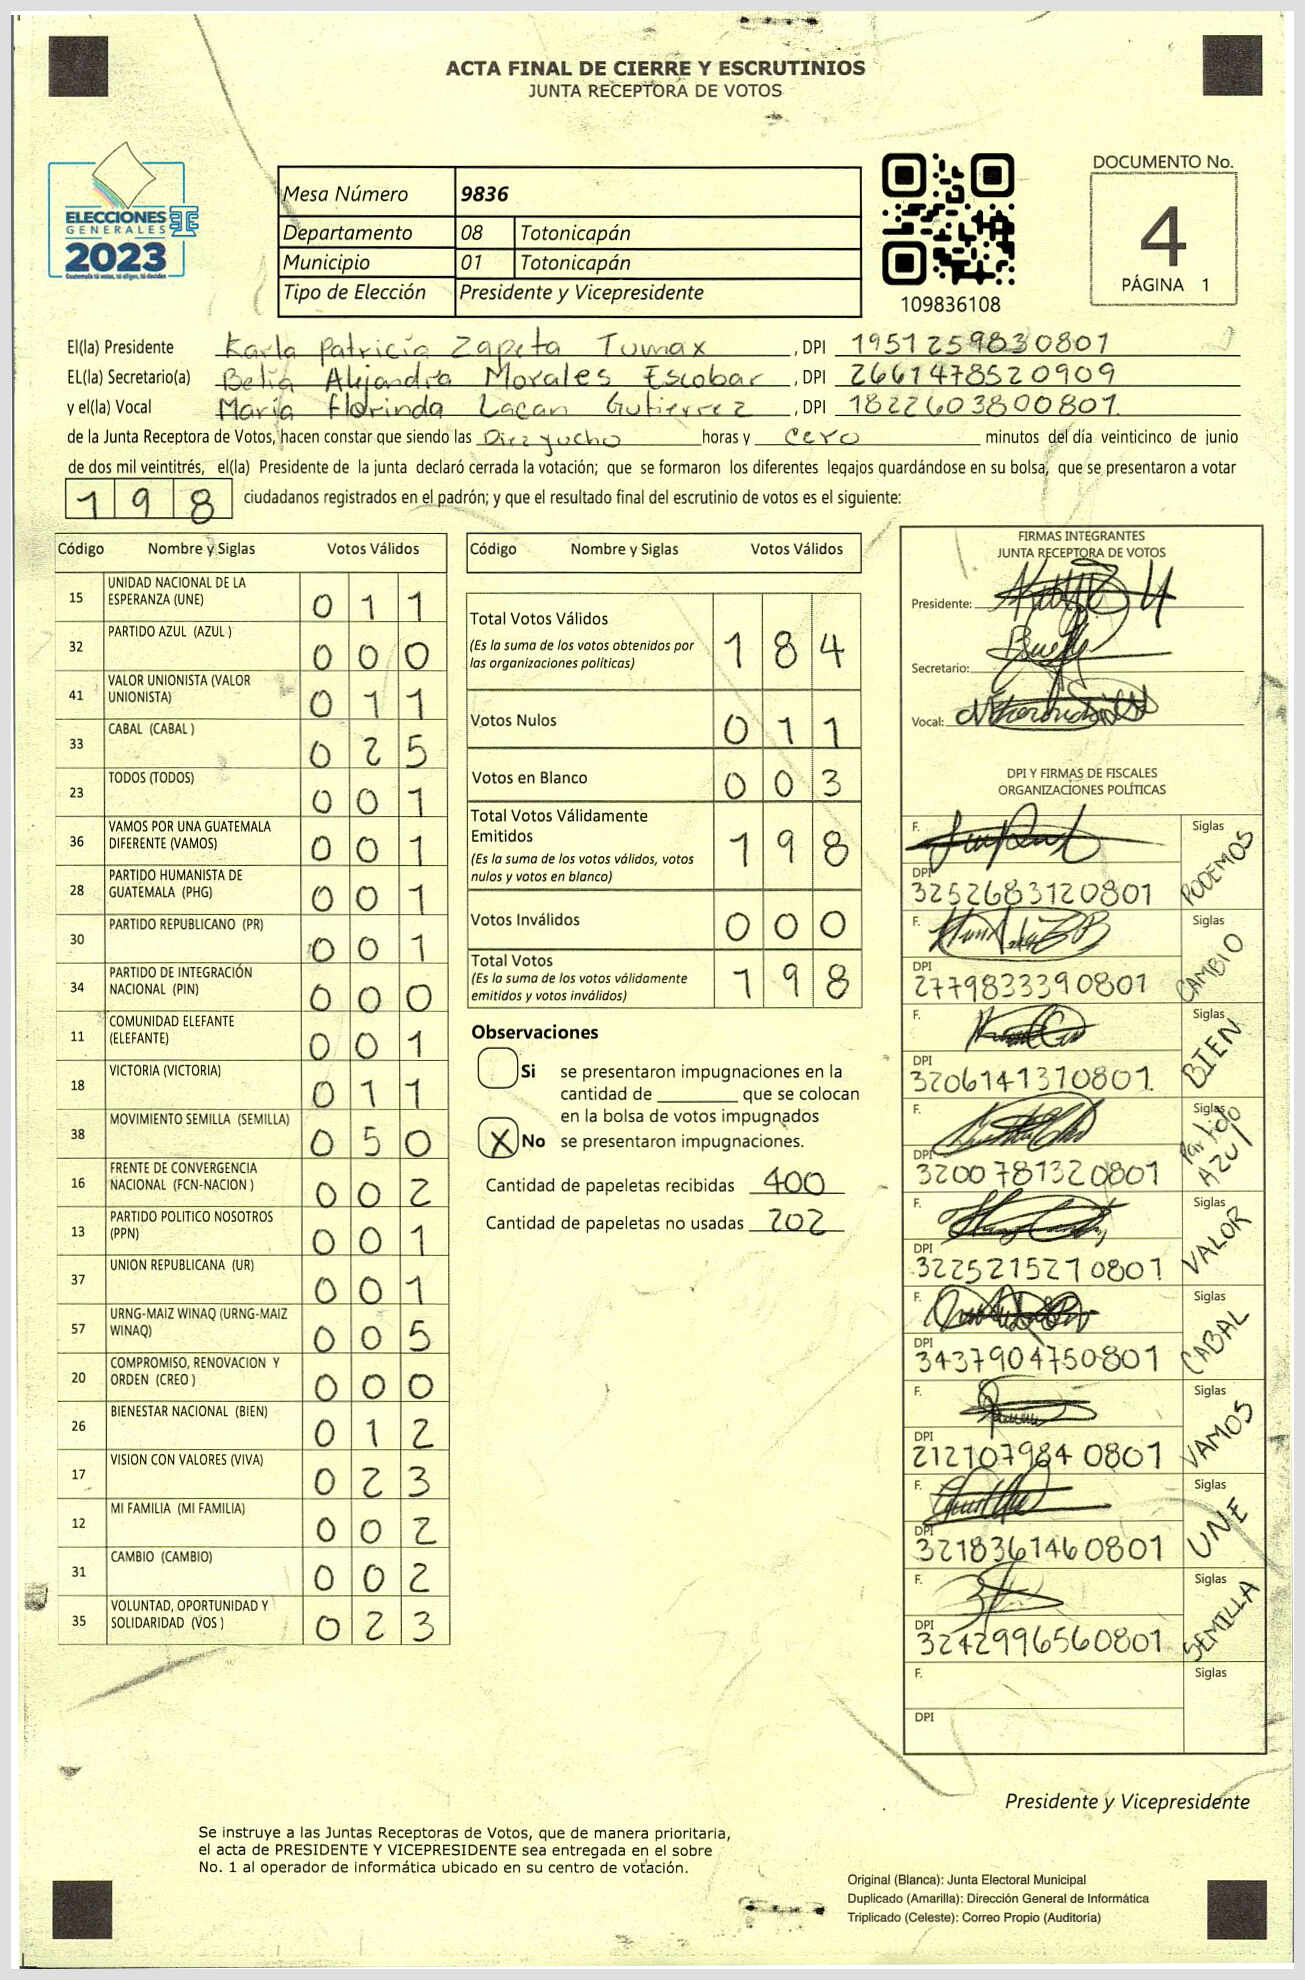 ACTA FINAL DE CIERRE Y ESCRUTINIOS
JUNTA RECEPTORA DE VOTOS
ELECCIONES
GENERALES
2023
Guatemala tú votas, tú eliges, tú decides
Mesa Número 9836
Departamento 08 Totonicapán
Municipio 01 Totonicapán
Tipo de Elección Presidente y Vicepresidente
109836108
DOCUMENTO No.
4
PÁGINA 1
El(la) Presidente Karla Patricia Zapeta Tumax, DPI 1951259830801
EL(la) Secretario(a) Belia Alejandra Morales Escobar, DPI 2661478520909
y el(la) Vocal María Florinda Lacan Gutierrez, DPI 1822603800801.
de la Junta Receptora de Votos, hacen constar que siendo las Diezyocho horas y cero minutos del día veinticinco de junio
de dos mil veintitrés, el(la) Presidente de la junta declaró cerrada la votación; que se formaron los diferentes legajos guardándose en su bolsa, que se presentaron a votar
198 ciudadanos registrados en el padrón; y que el resultado final del escrutinio de votos es el siguiente:
Código Nombre y Siglas Votos Válidos
15 UNIDAD NACIONAL DE LA ESPERANZA (UNE) 011
32 PARTIDO AZUL (AZUL ) 000
41 VALOR UNIONISTA (VALOR UNIONISTA) 011
33 CABAL (CABAL ) 025
23 TODOS (TODOS) 001
36 VAMOS POR UNA GUATEMALA DIFERENTE (VAMOS) 001
28 PARTIDO HUMANISTA DE GUATEMALA (PHG) 001
30 PARTIDO REPUBLICANO (PR) 001
34 PARTIDO DE INTEGRACIÓN NACIONAL (PIN) 000
11 COMUNIDAD ELEFANTE (ELEFANTE) 001
18 VICTORIA (VICTORIA) 011
38 MOVIMIENTO SEMILLA (SEMILLA) 050
16 FRENTE DE CONVERGENCIA NACIONAL (FCN-NACION ) 002
13 PARTIDO POLITICO NOSOTROS (PPN) 001
37 UNION REPUBLICANA (UR) 001
57 URNG-MAIZ WINAQ (URNG-MAIZ WINAQ) 005
20 COMPROMISO, RENOVACION Y ORDEN (CREO ) 000
26 BIENESTAR NACIONAL (BIEN) 012
17 VISION CON VALORES (VIVA) 023
12 MI FAMILIA (MI FAMILIA) 002
31 CAMBIO (CAMBIO) 002
35 VOLUNTAD, OPORTUNIDAD Y SOLIDARIDAD (VOS ) 023
Código Nombre y Siglas Votos Válidos
Total Votos Válidos 184
(Es la suma de los votos obtenidos por
las organizaciones políticas)
Votos Nulos 011
Votos en Blanco 003
Total Votos Válidamente
Emitidos 198
(Es la suma de los votos válidos, votos
nulos y votos en blanco)
Votos Inválidos 000
Total Votos 198
(Es la suma de los votos válidamente
emitidos y votos inválidos)
Observaciones
Si se presentaron impugnaciones en la
cantidad de ________ que se colocan
en la bolsa de votos impugnados
X No se presentaron impugnaciones.
Cantidad de papeletas recibidas 400
Cantidad de papeletas no usadas 202
FIRMAS INTEGRANTES
JUNTA RECEPTORA DE VOTOS
Presidente:
Secretario:
Vocal:
DPI Y FIRMAS DE FISCALES
ORGANIZACIONES POLÍTICAS
F. Siglas PODEMOS
DPI 3252683120801
F. Siglas CAMBIO
DPI 2779833390801
F. Siglas BIEN
DPI 3206141370801.
F. Siglas Partido AZUl
DPI 3200781320801
F. Siglas VALOR
DPI 3225215270801
F. Siglas CABAL
DPI 3437904750801
F. Siglas VAMOS
DPI 2121079840801
F. Siglas UNE
DPI 3218361460801
F. Siglas SEMILLA
DPI 3242996560801
F. Siglas
DPI
Presidente y Vicepresidente
Se instruye a las Juntas Receptoras de Votos, que de manera prioritaria,
el acta de PRESIDENTE Y VICEPRESIDENTE sea entregada en el sobre
No. 1 al operador de informática ubicado en su centro de votación.
Original (Blanca): Junta Electoral Municipal
Duplicado (Amarilla): Dirección General de Informática
Triplicado (Celeste): Correo Propio (Auditoría)